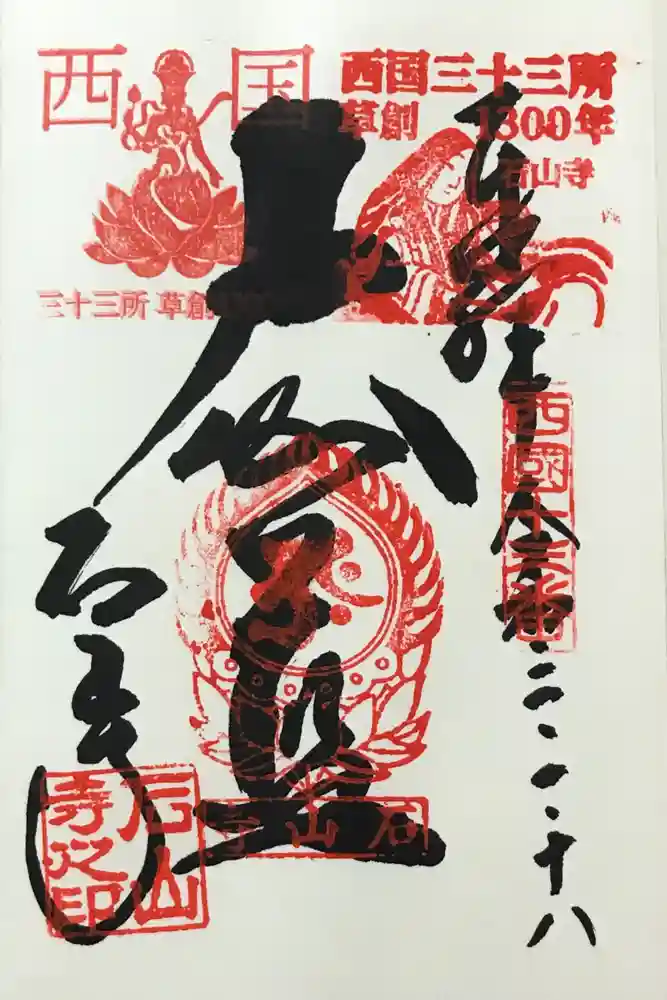 西国
三十三所 草創
西国三十三所
草創 1300年
石山寺
奉拝
西國十三番
大伽藍
石山寺
石山寺
石山寺之印
十八